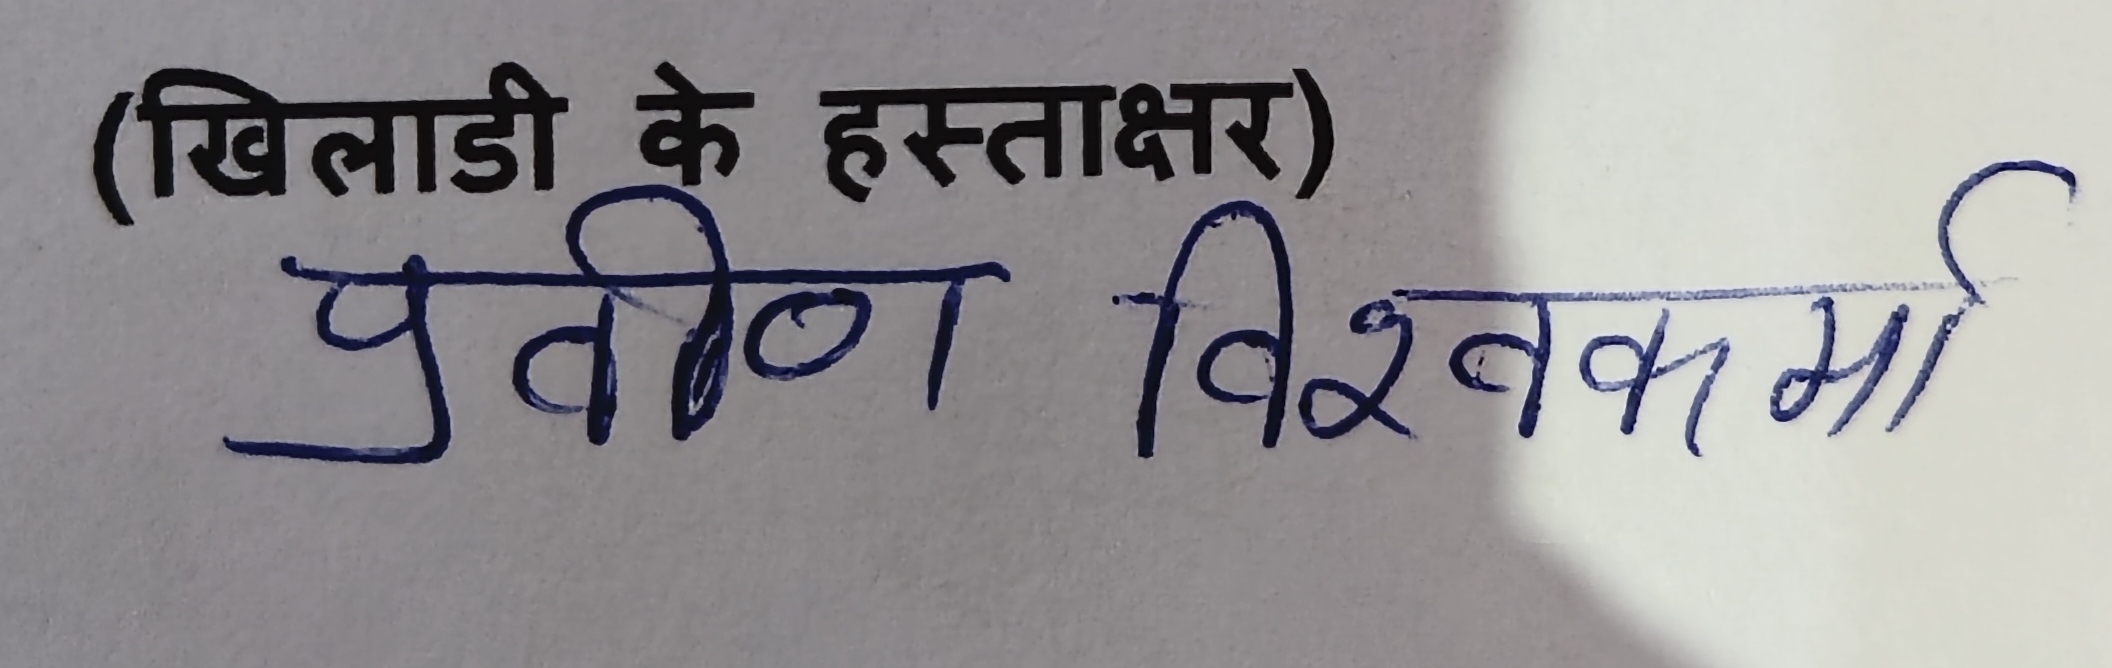 (खिलाडी के हस्ताक्षर)
प्रवीण विश्वकर्मा